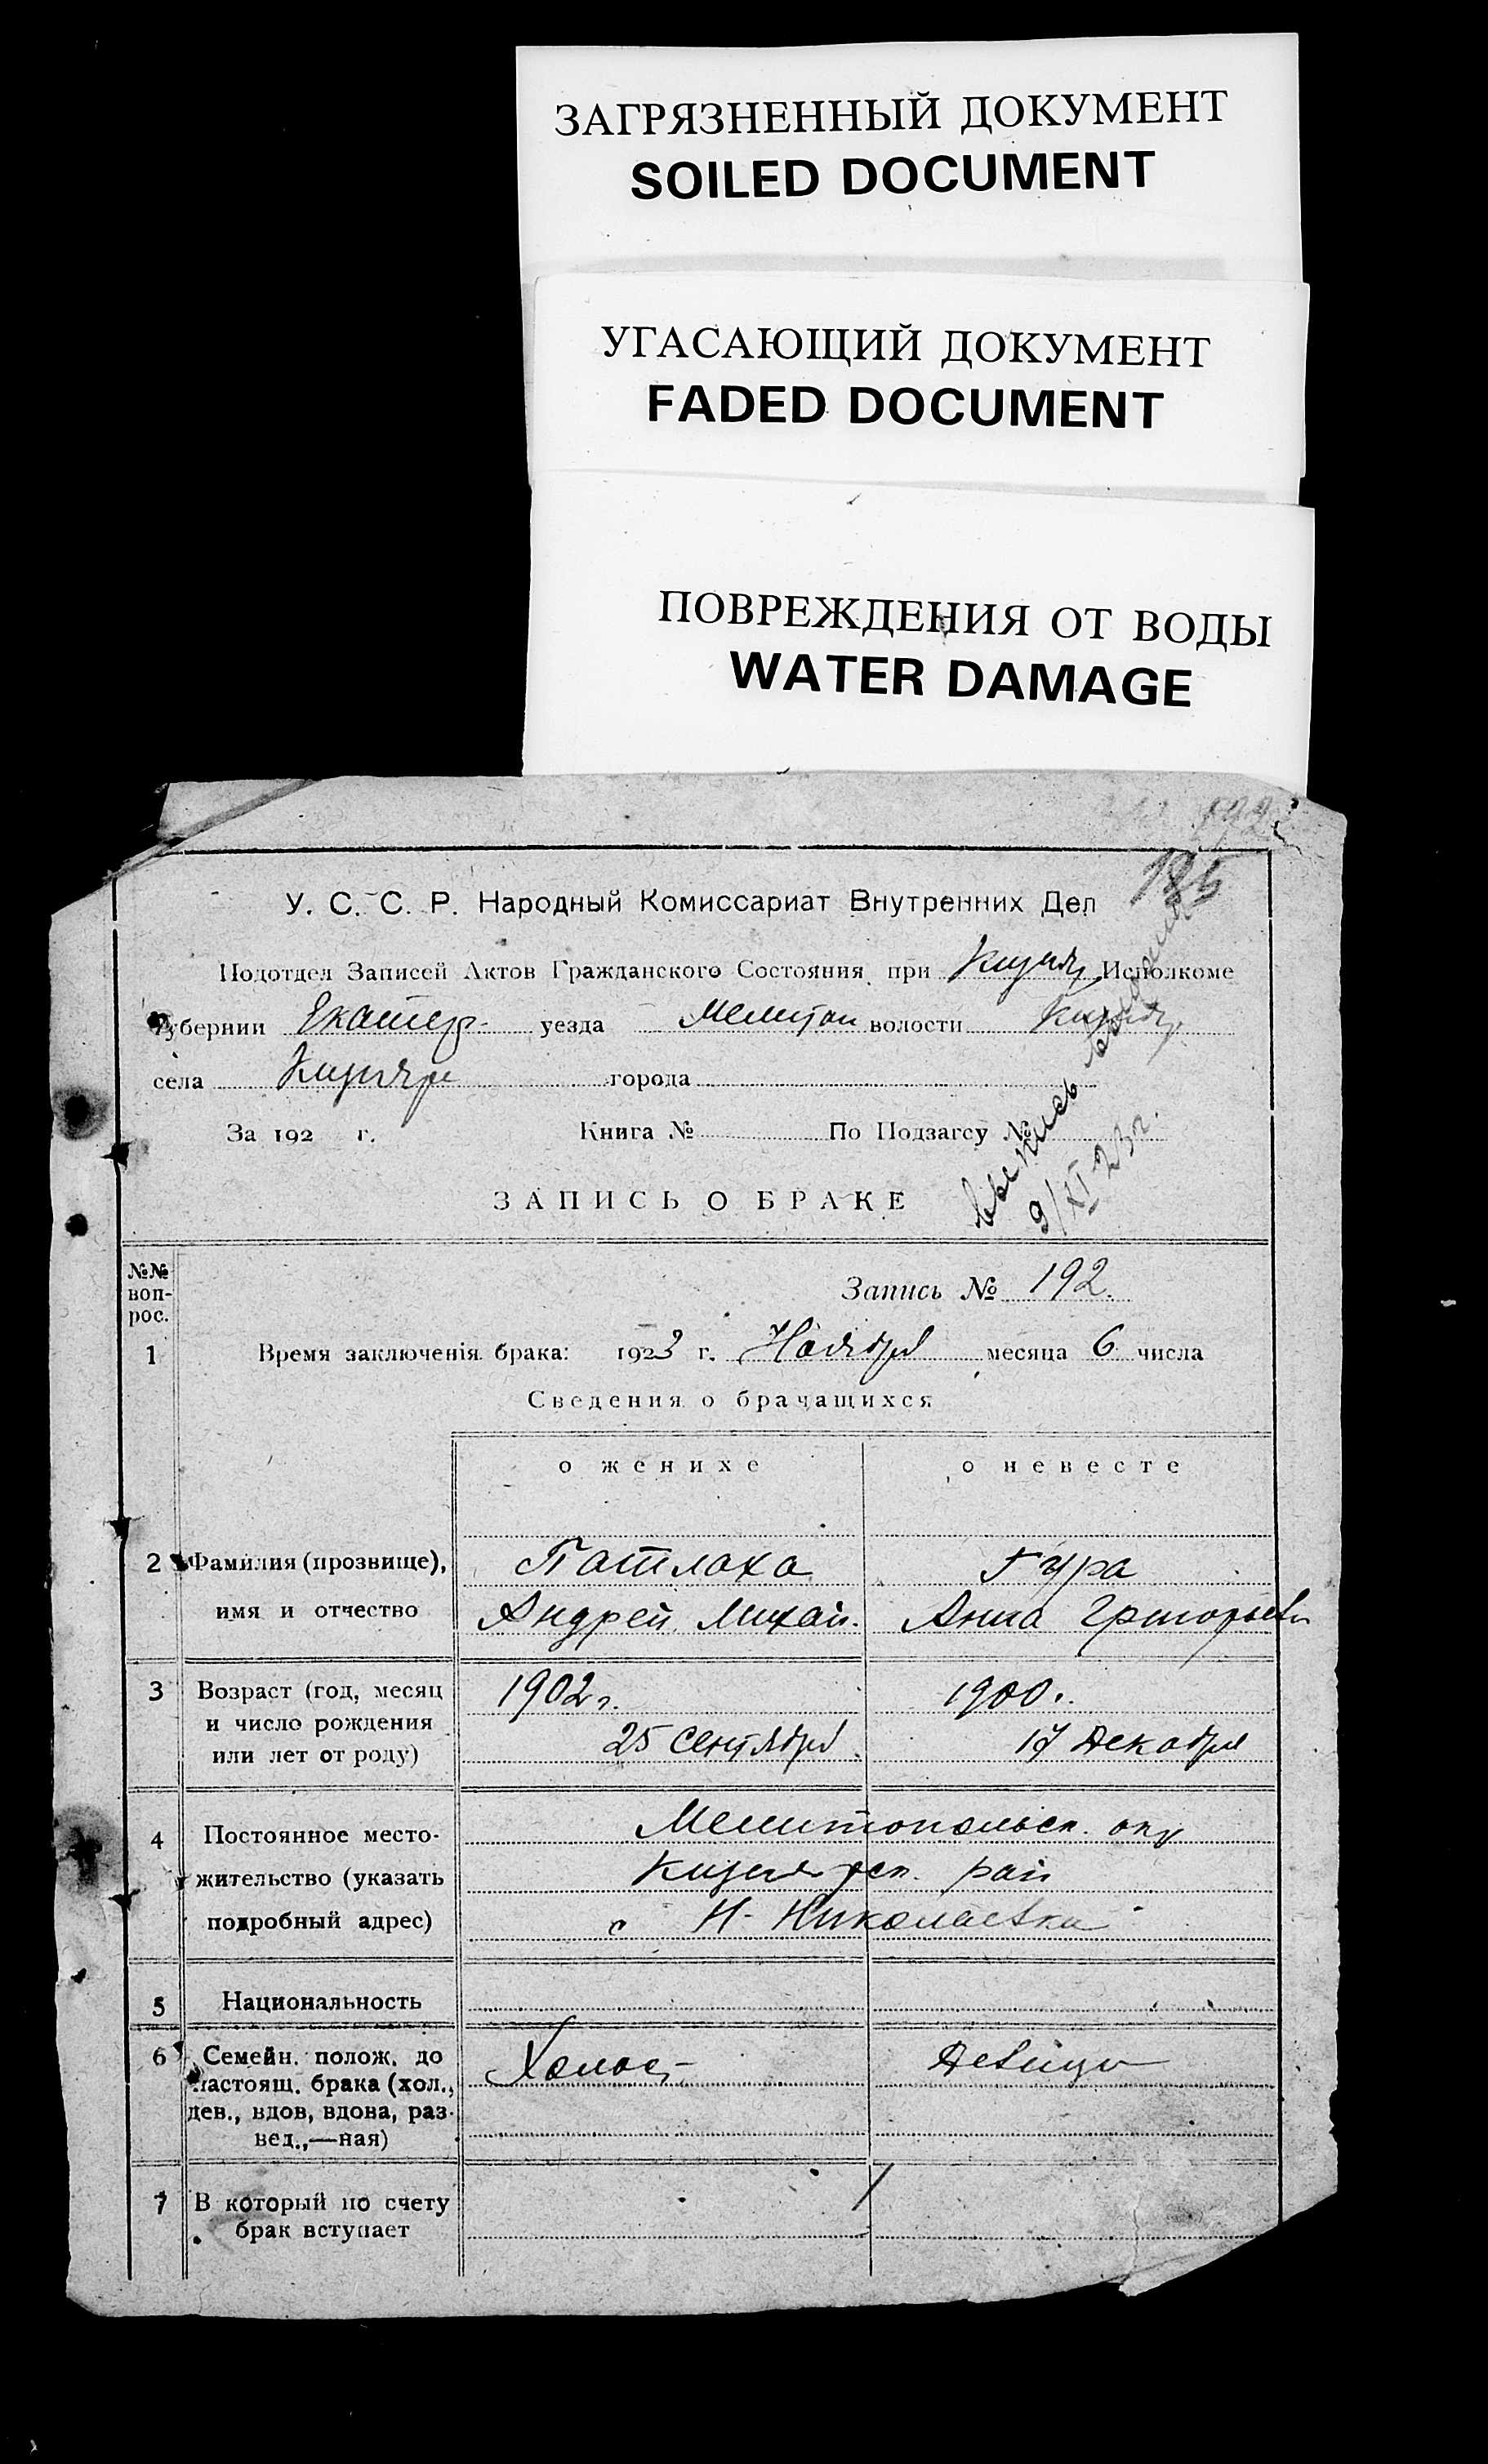 ЗАГРЯЗНЕННЫЙ ДОКУМЕНТ
SOILED DOCUMENT
УГАСАЮЩИЙ ДОКУМЕНТ
FADED DOCUMENT
ПОВРЕЖДЕНИЯ ОТ ВОДЫ
WATER DAMAGE
192
185
У. С. С. Р. Народный Комиссариат Внутренних Дел
Подотдел Записей Актов Гражданского Состояния при Кизияр Исполкоме
Губернии Екатер. уезда Мелитоп волости Кизияр.
села Кизияри города
За 192 г. Книга № По Подзагсу №
выпись
9/XI 23 г.
ЗАПИСЬ О БРАКЕ
№№ вопрос.
Запись № 192.
1 Время заключенія брака: 1923 г. Ноября месяца 6 числа
Сведения о брачащихся
о женихе о невесте
2 Фамилия (прозвище), Патлаха Гура
имя и отчество Андрей Михай. Анна Григорьевн
3 Возраст (год, месяц 1902 г. 1900 г.
и число рождения 25 Сентября 17 Декабря
или лет от роду)
4 Постоянное место- Мелитопольск. окр
жительство (указать Кизиярск. рай
подробный адрес) с Н-Николаевка
5 Национальность
6 Семейн. полож. до Холост Девица
настоящ. брака (хол.,
дев., вдов, вдова, раз-
вед.,—ная)
7 В который по счету 1
брак вступает